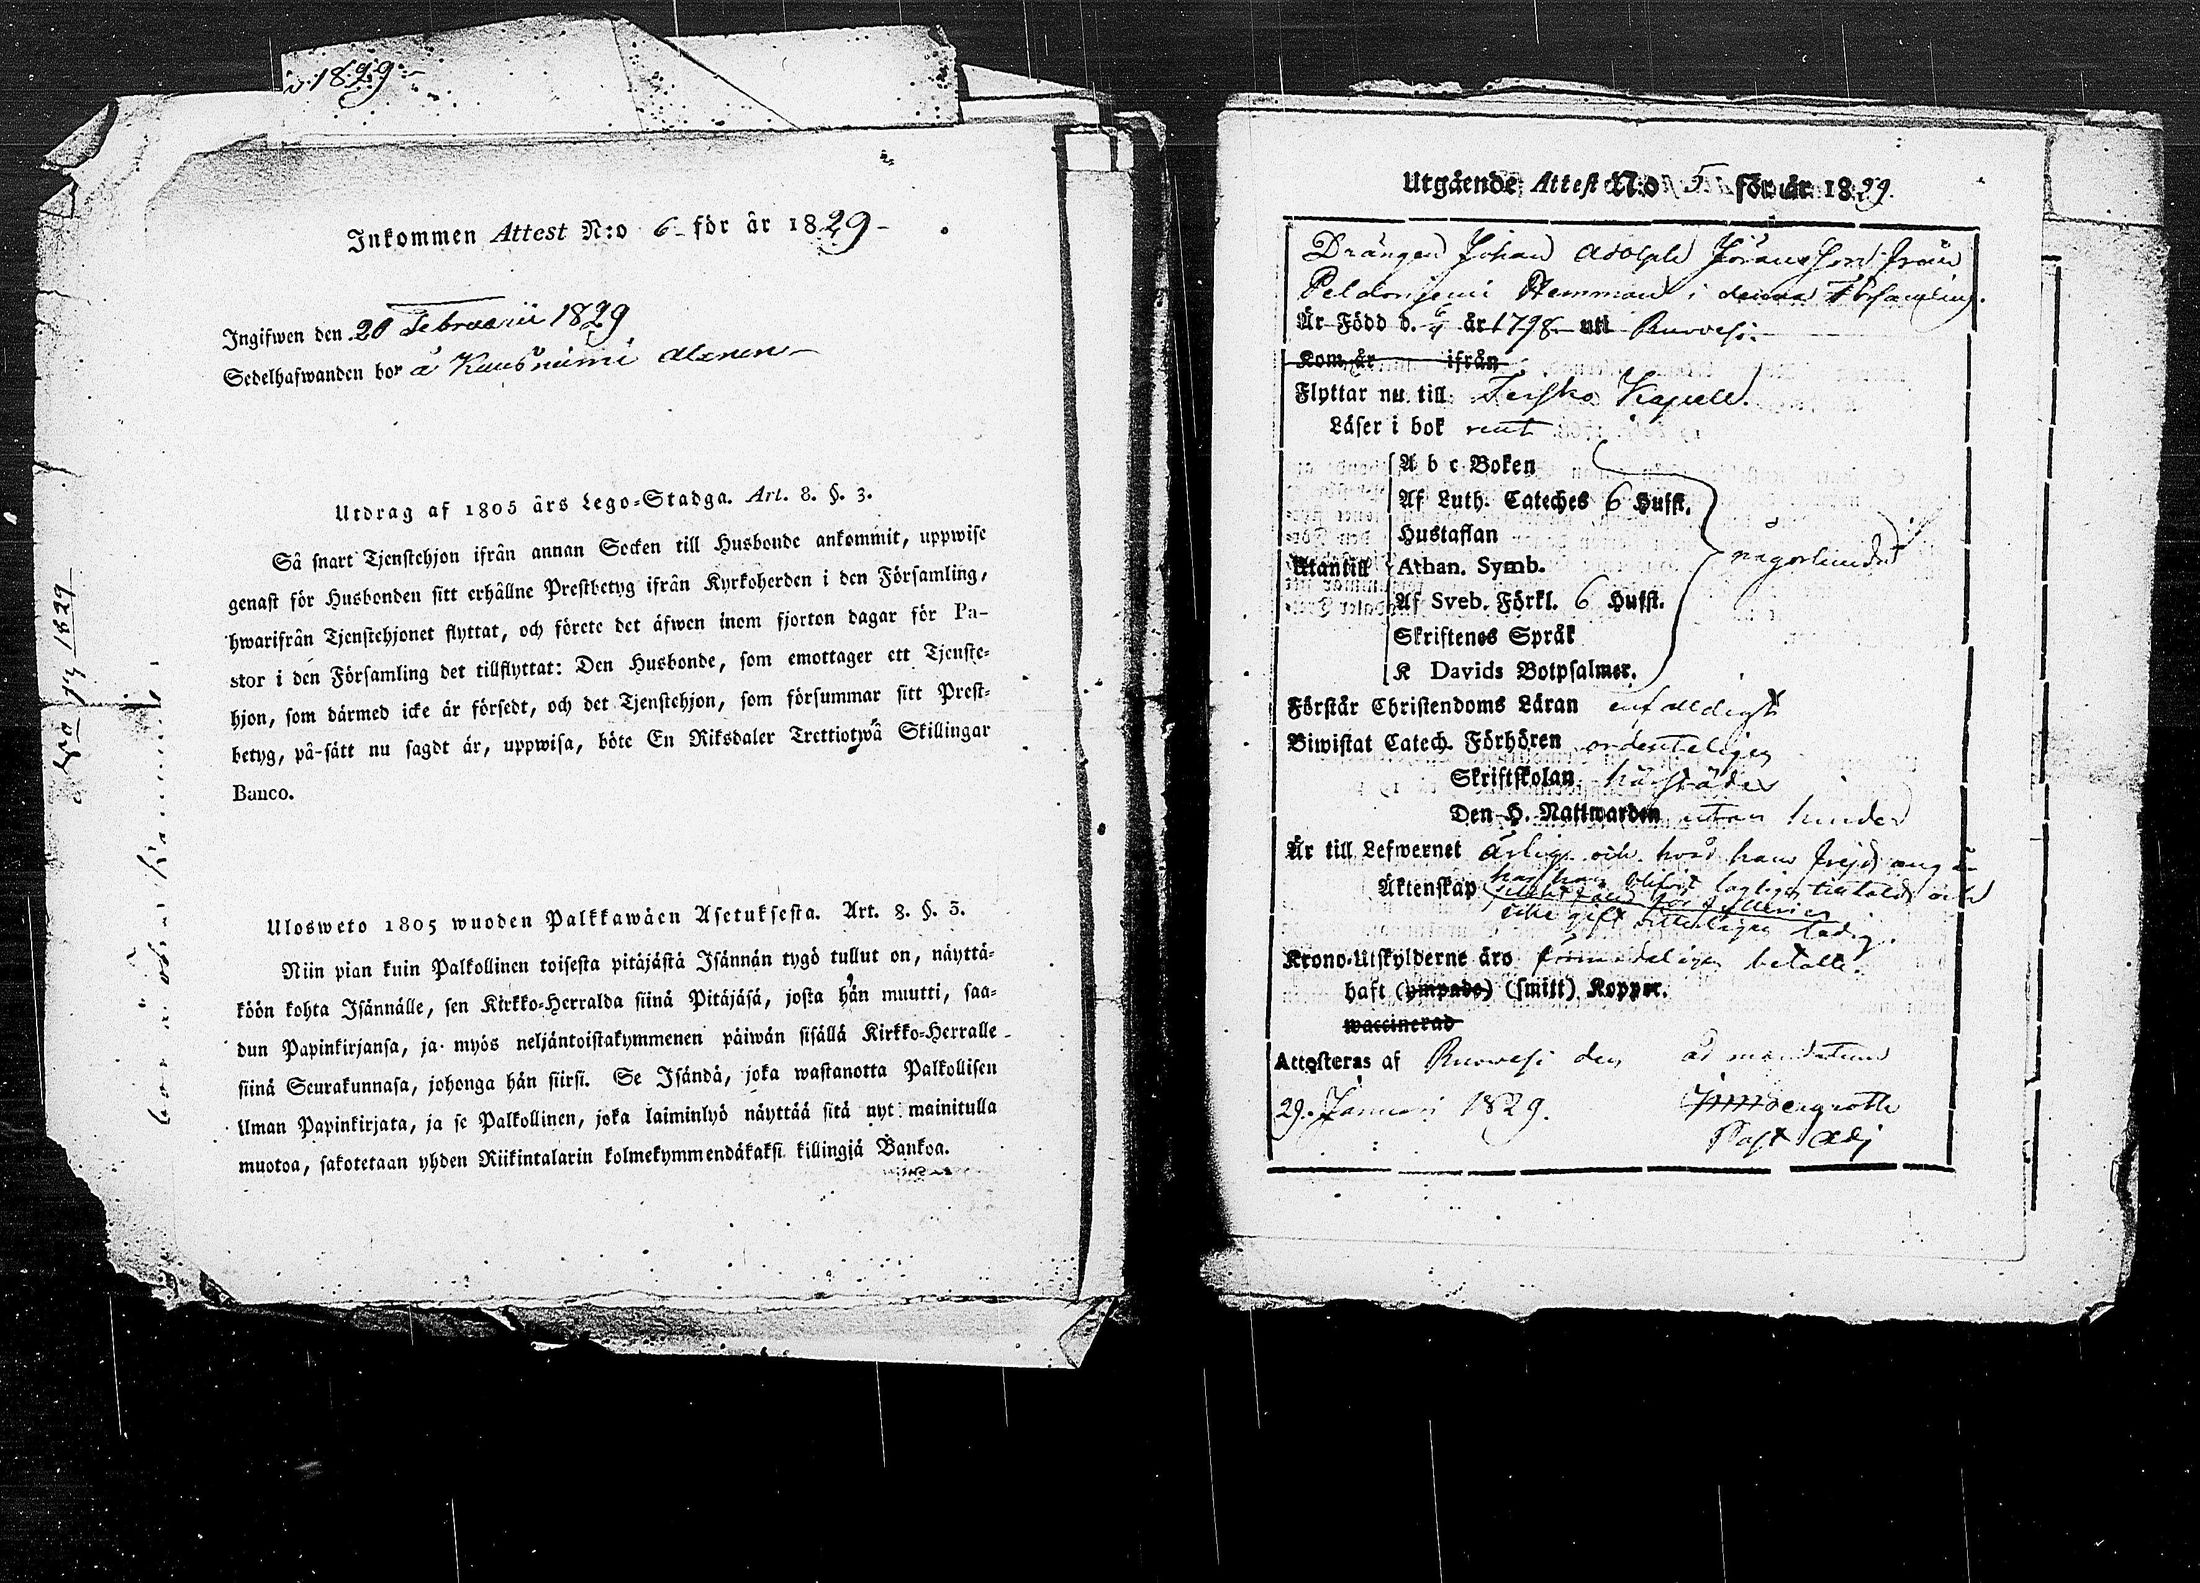 1829
Inkommen Attest N:o 6 för år 1829
Ingifwen den 20 Februarii 1829
Sedelhafwanden bor å
Utdrag af 1805 års Lego-Stadga. Art. 8. §. 3.
Så snart Tjenstehjon ifrån annan Socken till Husbonde ankommit, uppwise
genast för Husbonden sitt erhållne Prestbetyg ifrån Kyrkoherden i den Församling,
hwarifrån Tjenstehjonet flyttat, och förete det äfwen inom fjorton dagar för Pa-
stor i den Församling det tillflyttat: Den Husbonde, som emottager ett Tjenste-
hjon, som därmed icke är försedt, och det Tjenstehjon, som försummar sitt Prest-
betyg, på-sätt nu sagdt är, uppwisa, böte En Riksdaler Trettiotwå Skillingar
Banco.
Ulosweto 1805 wuoden Palkkawäen Asetuksesta. Art. 8. §. 3.
Niin pian kuin Palkollinen toisesta pitäjästä Isännän tygö tullut on, näyttä-
köön kohta Isännälle, sen Kirkko-Herralda siinä Pitäjäsä, josta hän muutti, saa-
dun Papinkirjansa, ja myös neljäntoistakymmenen päiwän sisällä Kirkko-Herralle
siinä Seurakunnasa, johonga hän siirsi. Se Isändä, joka wastanotta Palkollisen
ilman Papinkirjata, ja se Palkollinen, joka laiminlyö näyttää sitä nyt mainitulla
muotoa, sakotetaan yhden Riikintalarin kolmekymmendäkaksi killingiä Bankoa.
1829
Utgående Attest N:o 5 för år 1829.
Drängen Johan Adolph Jöransson från
Hemman i denna Församling.
Är Född d. år 1798 uti Ruovesi.
Kom år ifrån
Flyttar nu till Kapell.
Läser i bok rent
A b c Boken
Af Luth. Cateches 6 Hufst.
Hustaflan
Utantill Athan. Symb. någorlunda
Af Sveb. Förkl. 6 Hufst.
Skriftenes Språk
K Davids Botpsalmer.
Förstår Christendoms Läran enfaldigt
Biwistat Catech. Förhören ordenteligen
Skriftskolan härstädes
Den H. Nattwarden utan hinder
Är till Lefwernet ärlig och hvad hans frejd angår
Äktenskap har han blifvit lagligen tilltalad och
icke gift ledig.
Krono-Utskylderne äro betalte.
haft (ympade) (smitt) Koppor.
waccinerad
Attesteras af Ruovesi den ad mandatum
29. Januari 1829.
Past. Adj